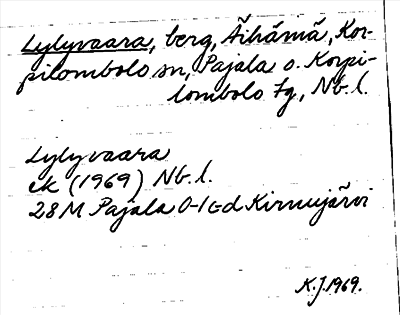 Lylyvaara, berg, Äihämä, Kor-
pilombolo sn, Pajala o. Korpi-
lombolo tg, Nb. l.
Lylyvaara
ek (1969) Nb. l.
28M Pajala 0-1 c-d Kirnujärvi
K.J. 1969.